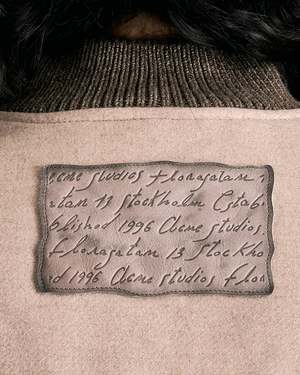 cme studios floragatan 1
atan 13 stockholm Estab
blished 1996 Acne studios.
floragatan 13 Stockho
ed 1996 Acne studios flora